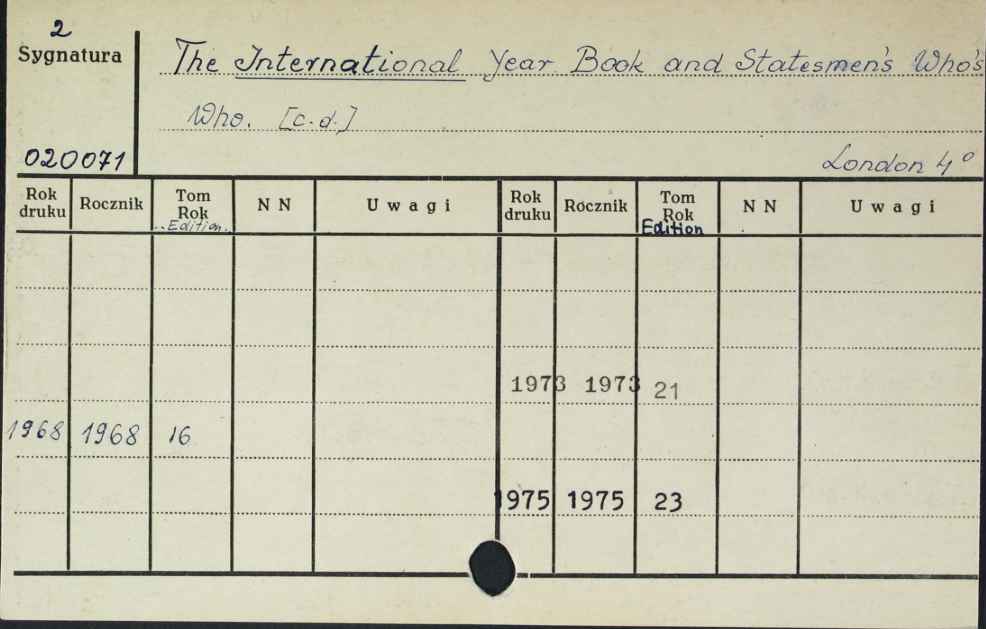 2
Sygnatura
The International Year Book and Statesmen's Who's
Who. [c.d.]
020071
London 4°
Rok druku Rocznik Tom Rok Edition NN Uwagi Rok druku Rocznik Tom Rok Edition NN Uwagi
1973 1973 21
1968 1968 16
1975 1975 23